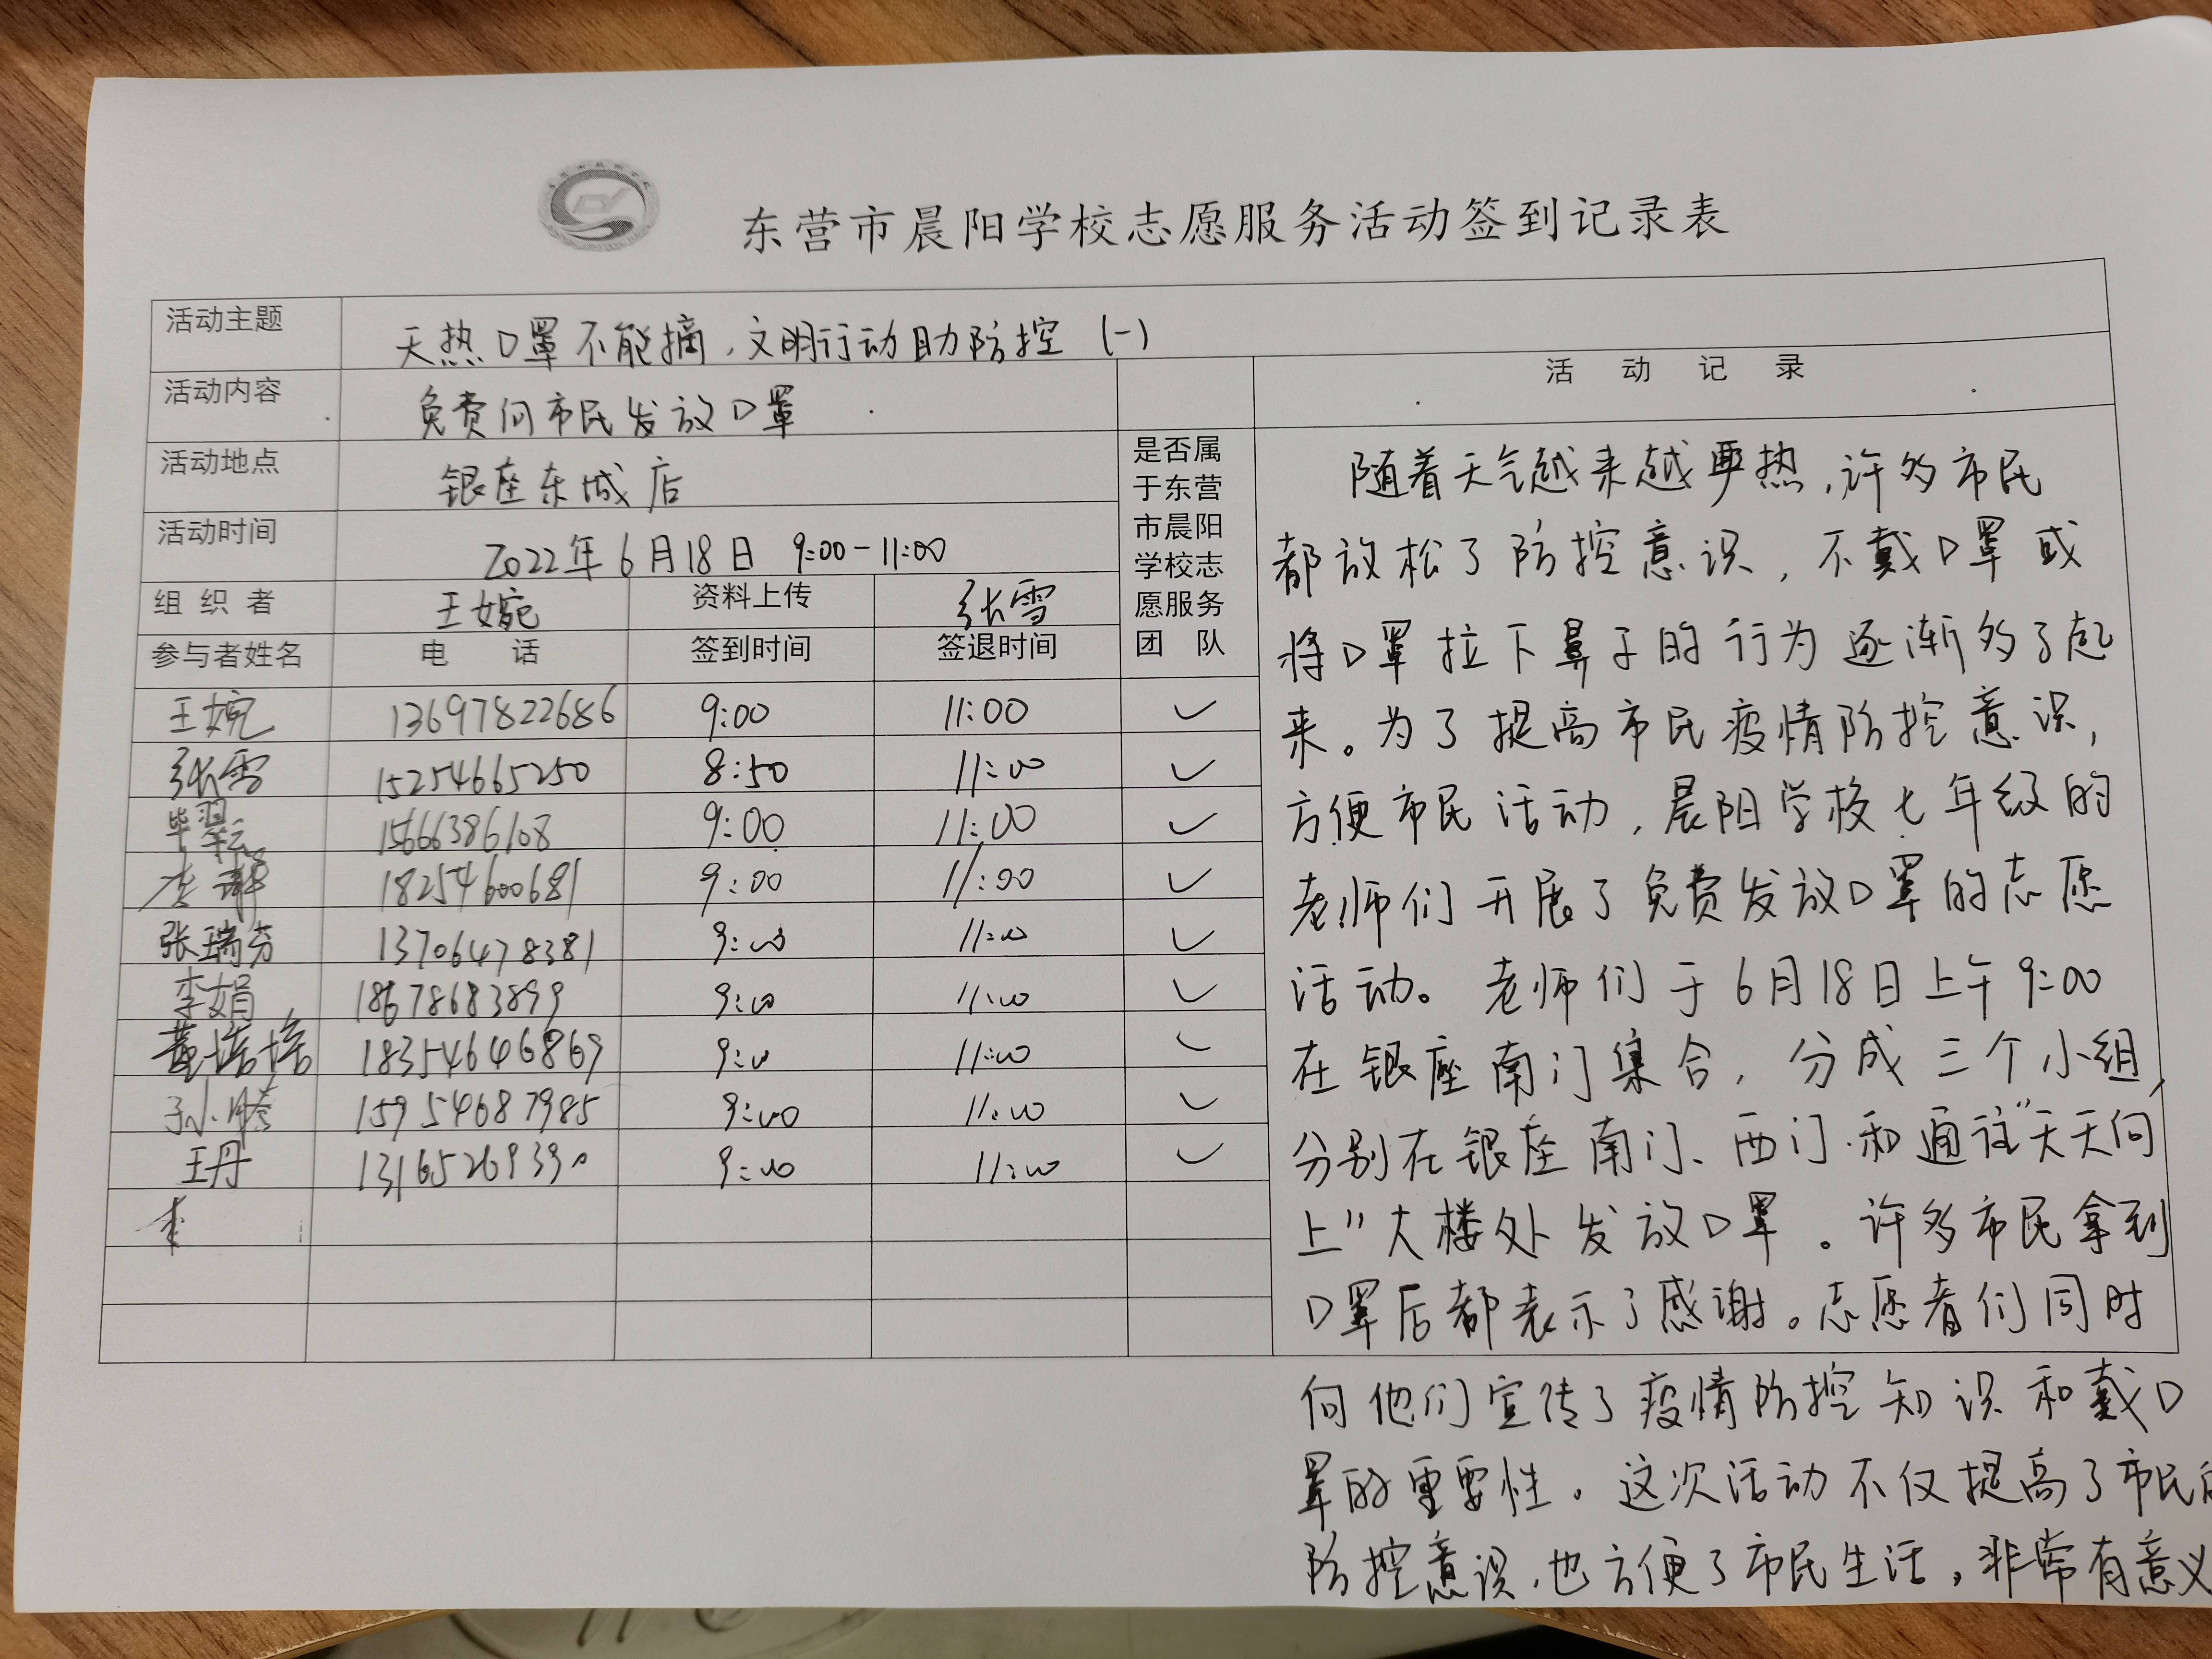 东营市晨阳学校志愿服务活动签到记录表
活动主题 天热口罩不能摘,文明行动助防控 (一)
活动内容 免费向市民发放口罩
活动地点 银座东城店
活动时间 2022年6月18日 9:00-11:00
组织者 王婉 资料上传 张雪
参与者姓名 电话 签到时间 签退时间
是否属
于东营
市晨阳
学校志
愿服务
团队
王婉 13697822686 9:00 11:00 ✓
张雪 15254665250 8:50 11:00 ✓
毕翠云 15666386108 9:00 11:00 ✓
18254600681 9:00 11:00 ✓
张瑞芬 13706478381 9:00 11:00 ✓
李娟 18678683899 9:00 11:00 ✓
董培培 18354646869 9:00 11:00 ✓
孙腾 15954687985 9:00 11:00 ✓
王丹 13165269390 9:00 11:00 ✓
活动记录
随着天气越来越严热,许多市民
都放松了防控意识,不戴口罩或
将口罩拉下鼻子的行为逐渐多了起
来。为了提高市民疫情防控意识,
方便市民活动,晨阳学校七年级的
老师们开展了免费发放口罩的志愿
活动。老师们于6月18日上午9:00
在银座南门集合,分成三个小组,
分别在银座南门、西门和通往"天天向
上"大楼处发放口罩。许多市民拿到
口罩后都表示了感谢。志愿者们同时
向他们宣传了疫情防控知识和戴口
罩的重要性。这次活动不仅提高了市民的
防控意识,也方便了市民生活,非常有意义